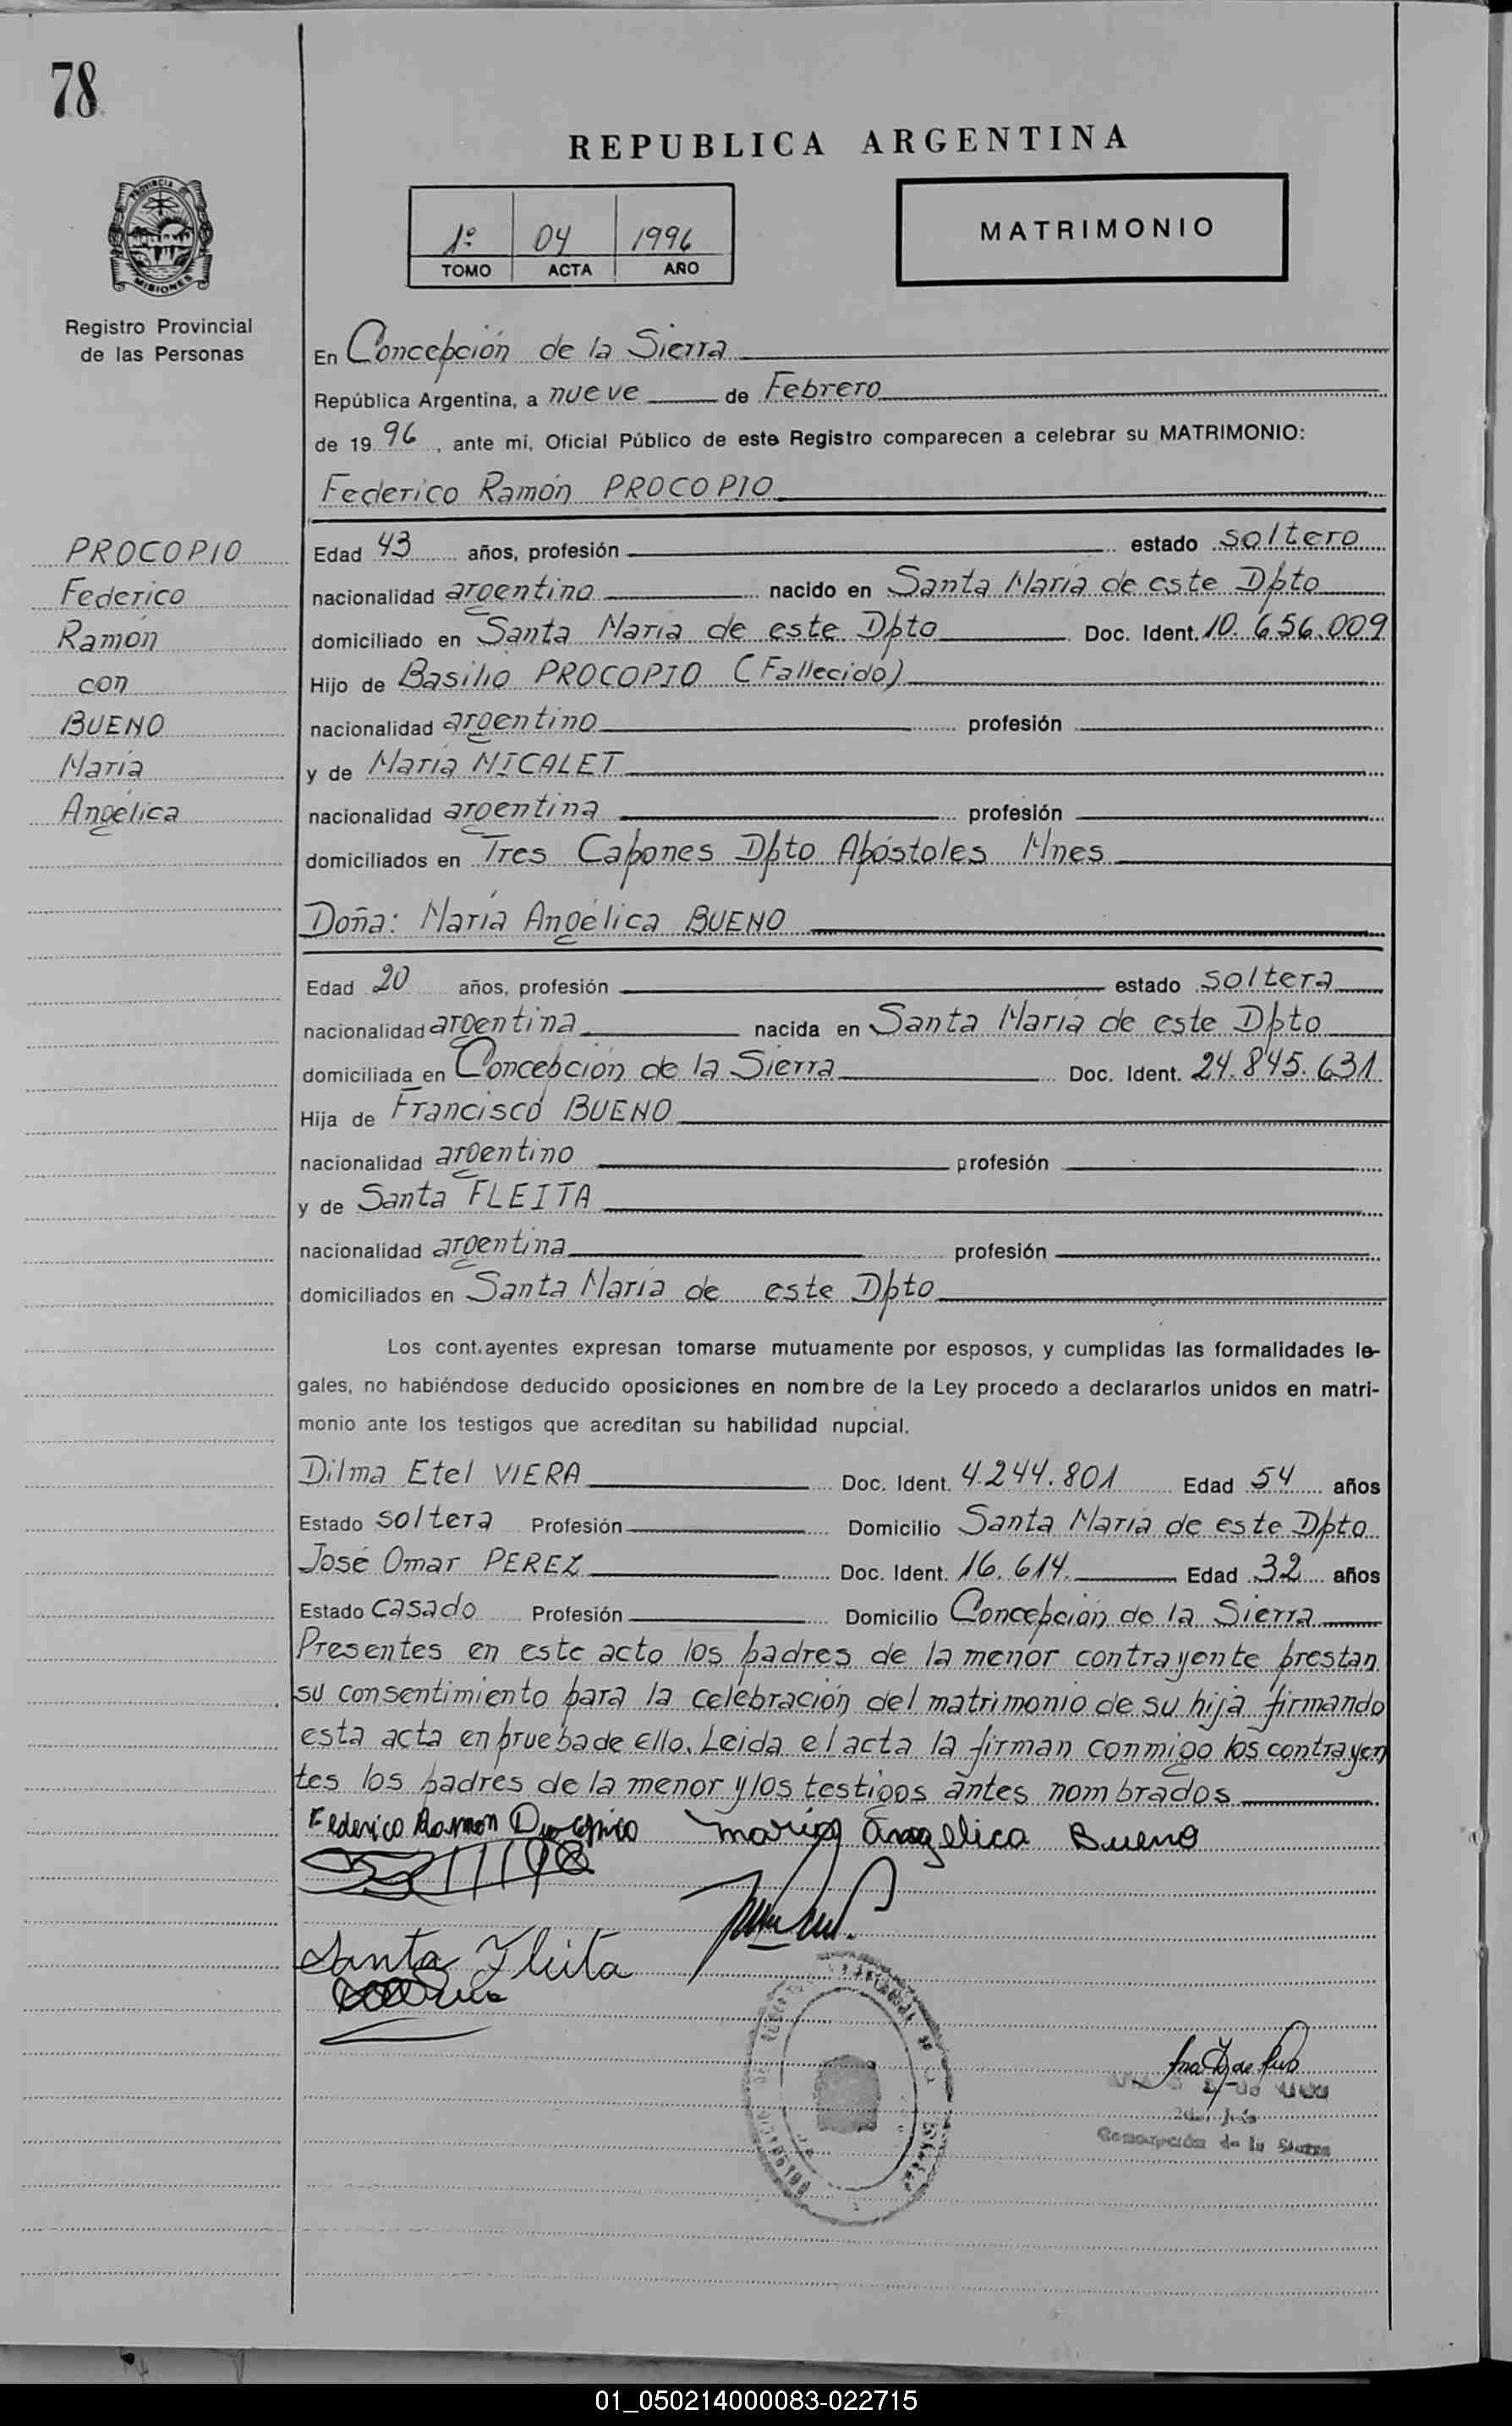 78
REPUBLICA ARGENTINA
PROVINCIA DE
MISIONES
1º 04 1996
TOMO ACTA AÑO
MATRIMONIO
Registro Provincial
de las Personas
En Concepción de la Sierra
República Argentina, a nueve de Febrero
de 1996, ante mí, Oficial Público de este Registro comparecen a celebrar su MATRIMONIO:
Federico Ramón PROCOPIO
PROCOPIO
Federico
Ramón
con
BUENO
María
Angélica
Edad 43 años, profesión estado soltero
nacionalidad argentino nacido en Santa María de este Dpto
domiciliado en Santa María de este Dpto Doc. Ident. 10.656.009
Hijo de Basilio PROCOPIO (Fallecido)
nacionalidad argentino profesión
y de María MICALET
nacionalidad argentina profesión
domiciliados en Tres Capones Dpto Apóstoles Mnes
Doña: María Angélica BUENO
Edad 20 años, profesión estado soltera
nacionalidad argentina nacida en Santa María de este Dpto
domiciliada en Concepción de la Sierra Doc. Ident. 24.845.631
Hija de Francisco BUENO
nacionalidad argentino profesión
y de Santa FLEITA
nacionalidad argentina profesión
domiciliados en Santa María de este Dpto
Los cont.ayentes expresan tomarse mutuamente por esposos, y cumplidas las formalidades le-
gales, no habiéndose deducido oposiciones en nombre de la Ley procedo a declararlos unidos en matri-
monio ante los testigos que acreditan su habilidad nupcial.
Dilma Etel VIERA Doc. Ident. 4.244.801 Edad 54 años
Estado soltera Profesión Domicilio Santa María de este Dpto
José Omar PEREZ Doc. Ident. 16.614. Edad 32 años
Estado casado Profesión Domicilio Concepción de la Sierra
Presentes en este acto los padres de la menor contrayente prestan
su consentimiento para la celebración del matrimonio de su hija firmando
esta acta en prueba de Ello. Leida el acta la firman conmigo los contrayen
tes los padres de la menor y los testigos antes nombrados
Federico Ramon maria angelica Bueno
Santa Fleita
Concepción de la Sierra
01_050214000083-022715